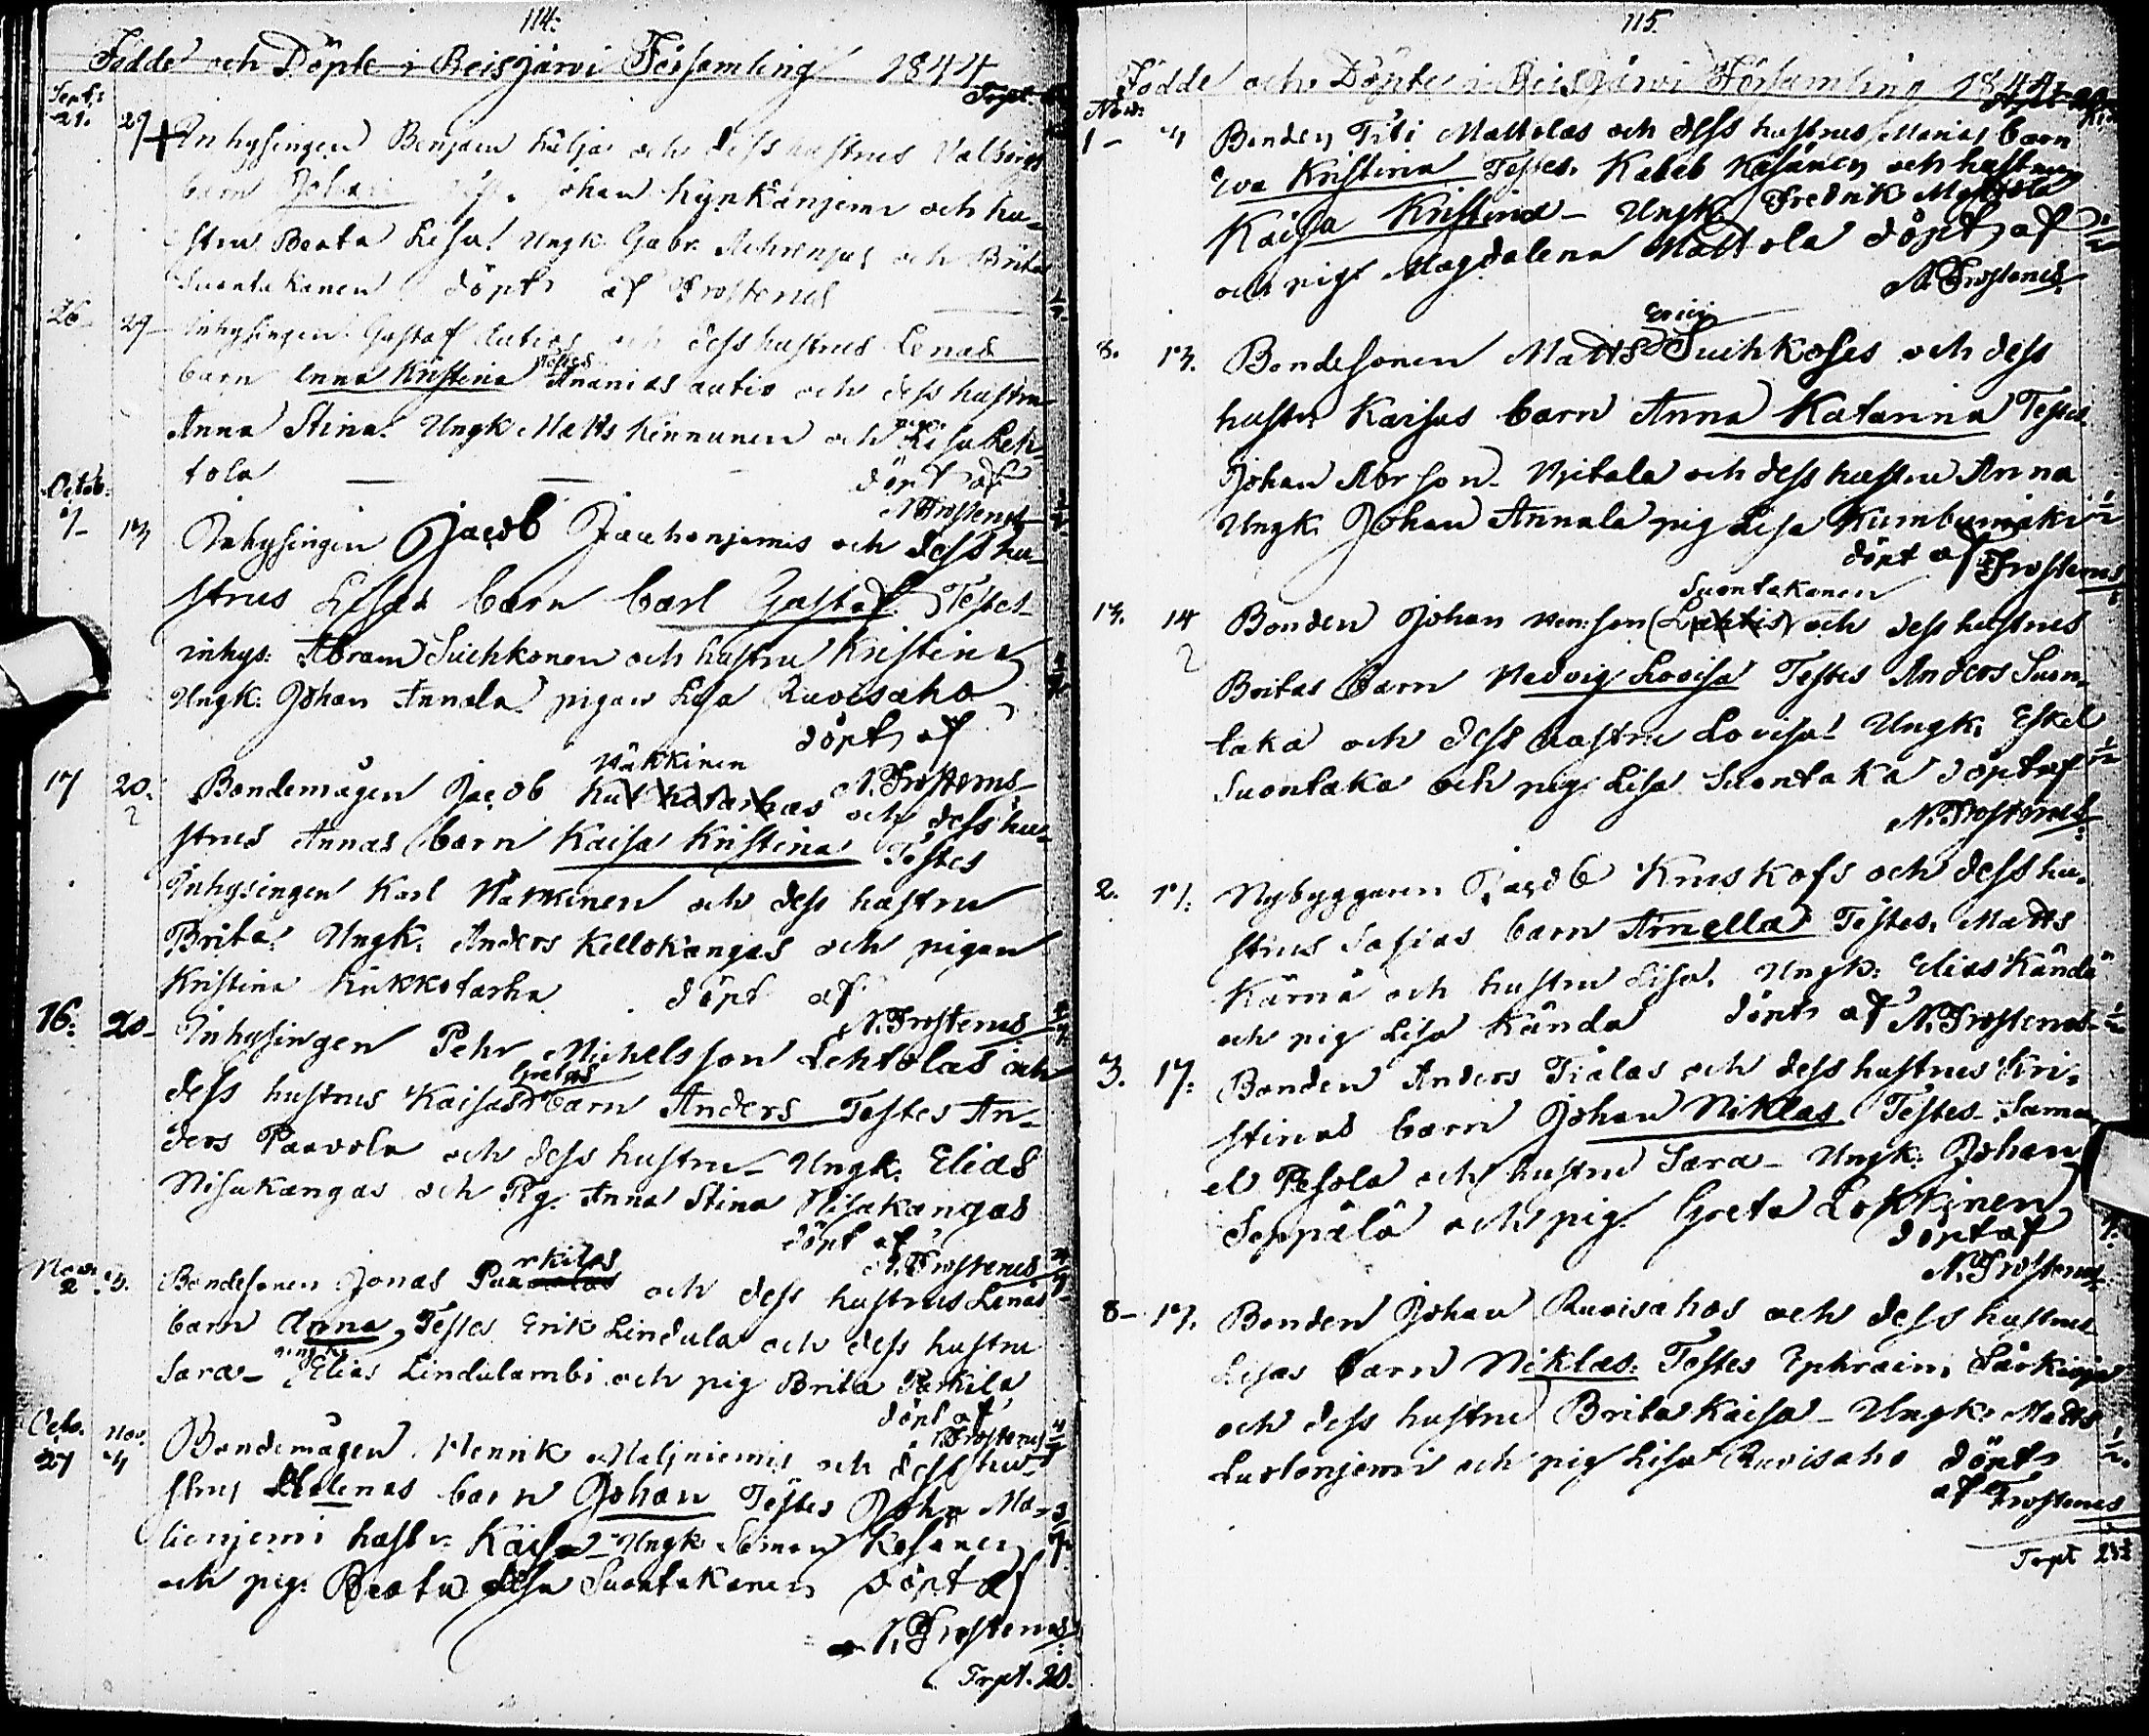 114.
Födde och Döpte i Reisjärvi Församling 1844
Trpt.
Sept:
21. 29 Inhysingen Benjam och dess hustrus Valborgs
barn Johan Johan Kynkänjemi och hu-
stru Beata Lisa. Ungk. Gabr. och Brita
Suontakanen döpt af Frosterus
26 29 Inhysingen Gustaf Autios och dess hustrus Lenas
Testes
barn Enna Kristina Ananias autio och dess hustru
pig.
Anna Stina. Ungk Matts Kinnunen och Lisa Leh-
tola — — — döpt af
N Frosterus
Octob:
7- 13 Inhysingen Jacob Jauhonjemis och dess hu-
strus Lisas barn Carl Gustaf. Testes
inhys: Abram Suihkonen och hustru Kristina
Ungk. Johan Annala pigan Lisa Ruvisaho
döpt af
Näkkinen
17 20. Bondemågen Jacob Kukkotarhas och dess hu-
N. Frosterus
strus Annas barn Kaisa Kristina Testes
Inhysingen Karl Näkkinen och dess hustru
Brita. Ungk. Anders Kellokangas och pigan
Kristina Kukkotarha döpt af
N. Frosterus
16. 20- Inhysingen Pehr Michelsson Lehtolas och
Gretas
dess hustrus Kaisas barn Anders Testes An-
ders Paavola och dess hustru- Ungk. Elias
Nisukangas och Pig. Anna Stina Nisukangas
döpt af
N. Frosterus
Nov:
rkilas
2 3. Bondesonen Jonas Paavolas och dess hustrus Lenas
barn Anna, Testes Erik Lindula och dess hustru
ungk.
Sara- Elias Lindulambi och pig Brita Parkila
döpt af
N. Frosterus
Octo. Nov.
27 4 Bondemågen Henrik Neljniemis och dess hu-
strus Helenas barn Johan Testes Johan Ma-
lienjemi hustr: Kaisa- Ungk Simon Kesänen
och pig. Beata Lisa Suontakanen döpt af
N. Frosterus
Trpt. 20.
115.
Födde och Döpte i Reisjärvi Församling 1844.
Trpt 20
Nov:
1- 4 Bonden Titi Mattolas och dess hustrus Marias barn
Eva Kristina Testes. Kaleb Kesänen och hustrun
Kaisa Kristina- Ungk Fredrik Mattola
och pig Magdalena Mattola döpt af
N. Frosterus
Erici
8. 13. Bondesonen Matts Suihkoses och dess
hustr. Kaisas barn Anna Katarina Testes
Johan Abr son Hitala och dess hustru Anna
Ungk. Johan Annala pig Lisa Kumbumäki
döpt af Frosterus
Suontakanen
13. 14 Bonden Johan Hen:son (Lahtis) och dess hustrus
Britas barn Hedvig Lovisa Testes Anders Suon-
taka och dess hustru Lovisa. Ungk. Eskel
Suontaka och pig. Lisa Suontaka döpt af
N. Frosterus
2. 17. Nybyggaren Jacob Kruskofs och dess hu-
strus Sofias barn Amella Testes. Matts
Kärnä och hustru Lisa. Ungk: Elias Kändä
och pig Lisa Kända döpt af N. Frosterus
3. 17. Bonden Anders Tiälas och dess hustrus Kri-
stinas barn Johan Niklas Testes. Samu
el Pesola och hustru Sara- Ungk. Johan
Seppälä och pig. Greta Lokkinen
döpt af
N. Frosterus
8- 17. Bonden Johan Ruvisahos och dess hustrus
Lisas barn Niklas: Testes Ephraim Särkioja
och dess hustru Brita Kaisa- Ungk. Matts
Lustonjemi och pig Lisa Ruvisaho döpt
af Frosterus
Trpt 23½